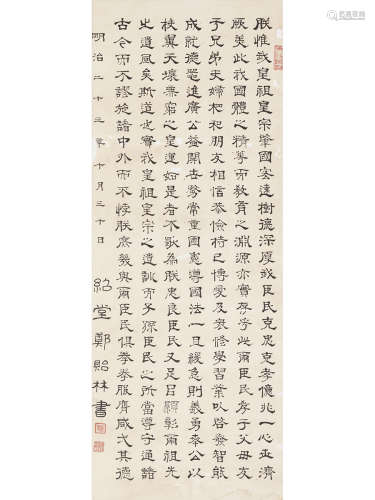 朕惟我皇祖皇宗肇國宏遠樹德深厚我臣民克忠克孝億兆一心世濟
厥美此我國體之精華而教育之淵源亦實存乎此爾臣民孝于父母友
于兄弟夫婦相和朋友相信恭儉持己博愛及衆修學習業以啓發智能
成就德器進廣公益開世務常重國憲遵國法一旦緩急則義勇奉公以
扶翼天壤無窮之皇運如是者不獨為朕忠良臣民又足以顯彰爾祖先
之遺風矣斯道也實我皇祖皇宗之遺訓而子孫臣民之所當遵守通諸
古今而不謬施諸中外而不悖朕庶幾與爾臣民俱拳拳服膺咸弌其德
明治二十三年十月三十日
紹堂鄭貽林書